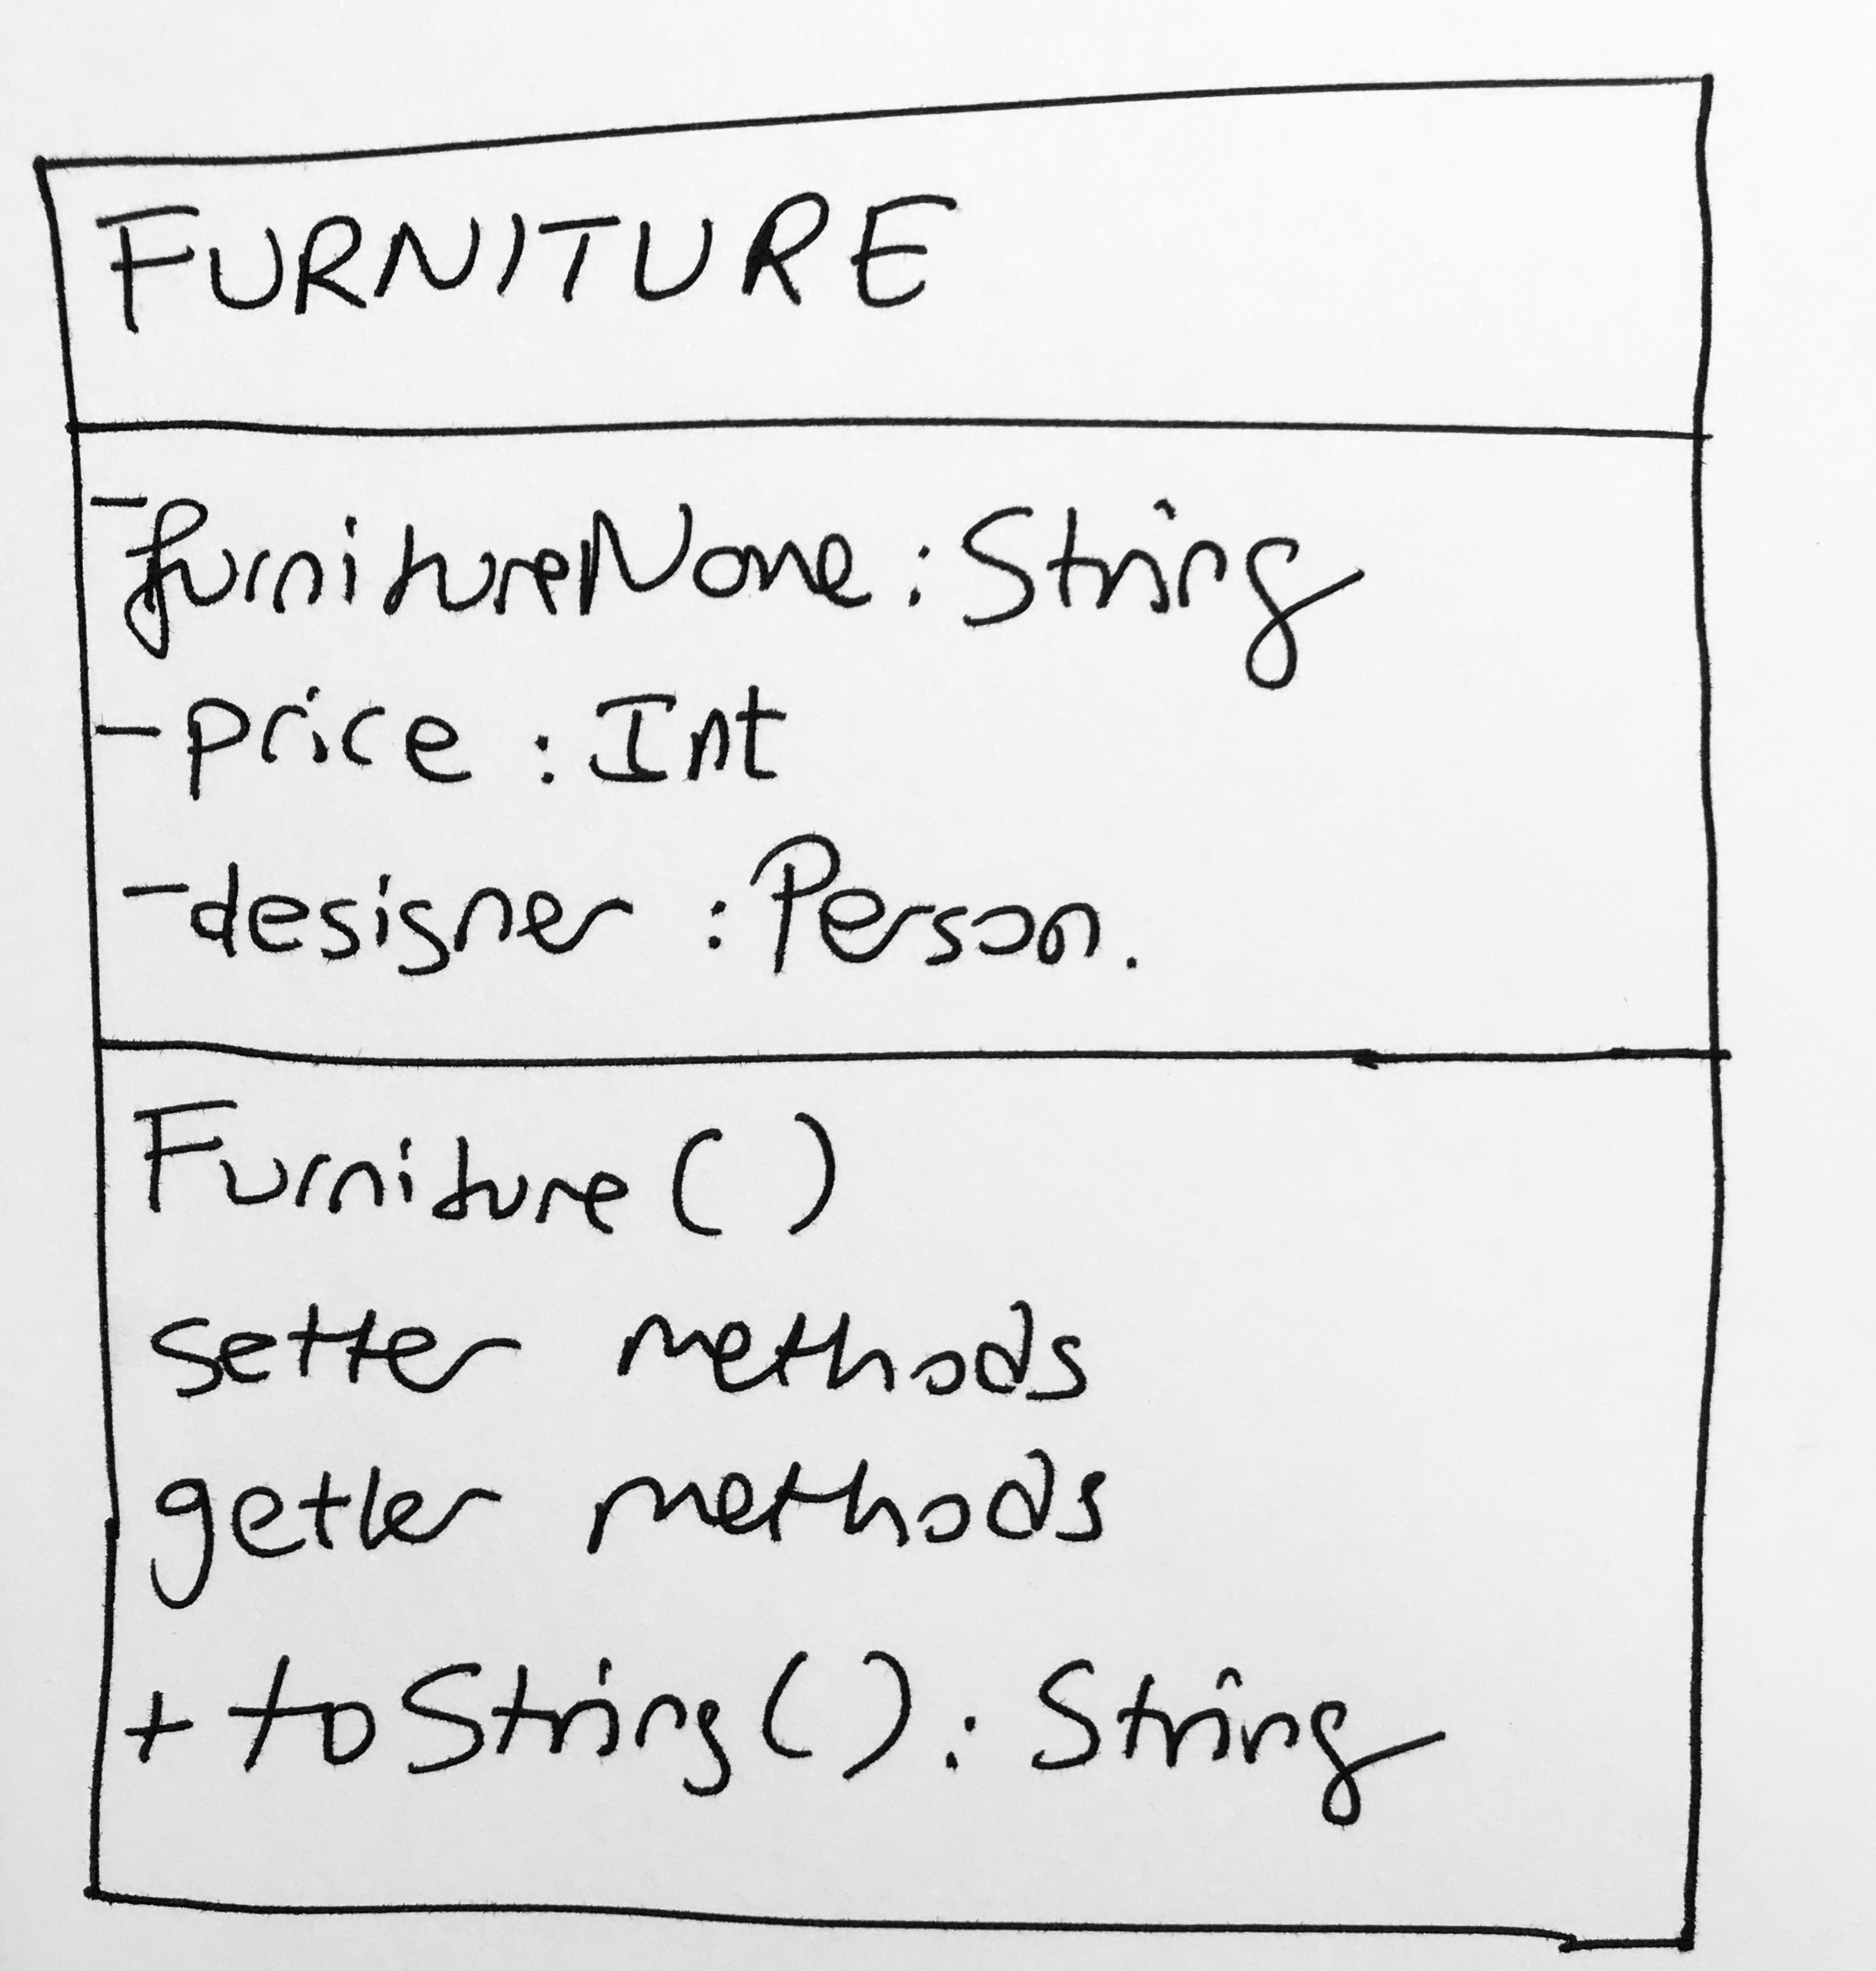 FURNITURE
-furnitureName : String
- price : Int
- designer : Person.
Furniture ( )
setter methods
getter methods
+ toString ( ) : String